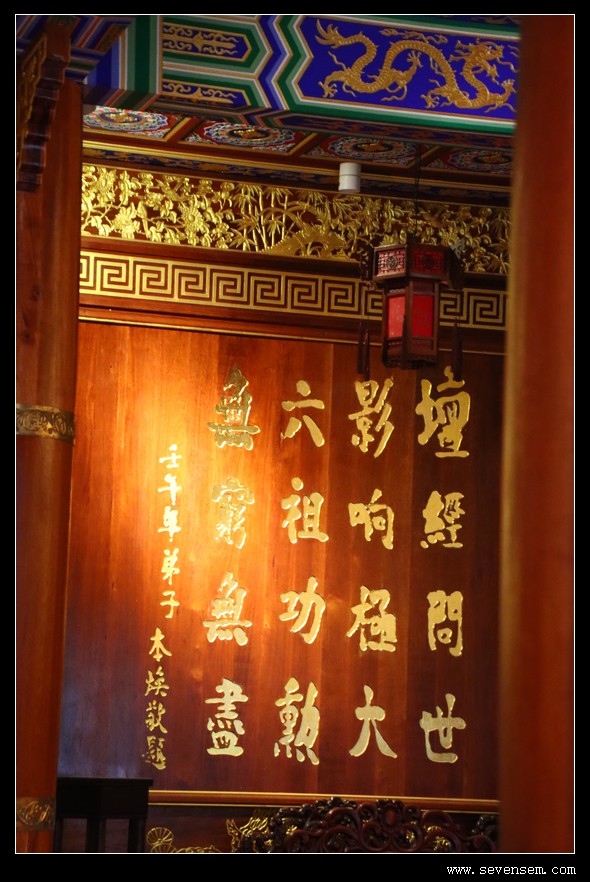 壇經問世
影响極大
六祖功勲
無窮無盡
壬午年弟子本煥敬題
www.sevensem.com